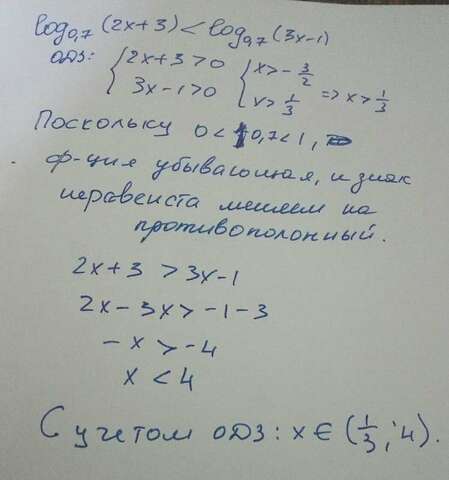 log₀,₇(2x+3) < log₀,₇(3x-1)
ОДЗ: { 2x+3>0 { x>-3/2
3x-1>0 x>1/3 => x>1/3
Поскольку 0<0,7<1,
ф-ция убывающая, и знак
неравенста меняем на
противоположный.
2x+3 >3x-1
2x-3x>-1-3
-x>-4
x<4
С учетом ОДЗ: x∈(1/3; 4).